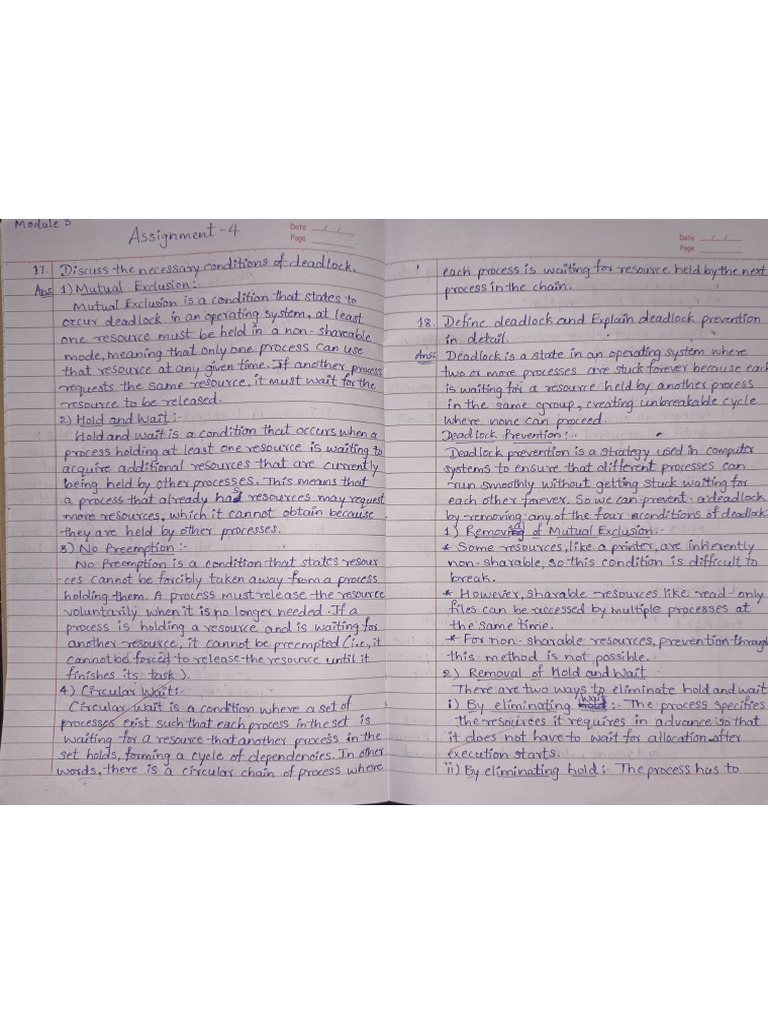 Module 5
Assignment - 4
Date
Page
17. Discuss the necessary conditions of deadlock.
Ans 1) Mutual Exclusion :-
Mutual Exclusion is a condition that states to
occur deadlock in an operating system, at least
one resource must be held in a non-shareable
mode, meaning that only one process can use
that resource at any given time. If another process
requests the same resource, it must wait for the
resource to be released.
2) Hold and Wait :-
Hold and wait is a condition that occurs when a
process holding at least one resource is waiting to
acquire additional resources that are currently
being held by other processes. This means that
a process that already has resources may request
more resources, which it cannot obtain because
they are held by other processes.
3) No Preemption :-
No Preemption is a condition that states resour
-ces cannot be forcibly taken away from a process
holding them. A process must release the resource
voluntarily when it is no longer needed. If a
process is holding a resource and is waiting for
another resource, it cannot be preempted (i.e, it
cannot be forced to release the resource until it
finishes its task).
4) Circular Wait :-
Circular wait is a condition where a set of
processes exist such that each process in the set is
waiting for a resource that another process in the
set holds, forming a cycle of dependencies. In other
words, there is a circular chain of process where
Date
Page
each process is waiting for resource held by the next
process in the chain.
18. Define deadlock and Explain deadlock prevention
in detail.
Ans: Deadlock is a state in an operating system where
two or more processes are stuck forever because each
is waiting for a resource held by another process
in the same group, creating unbreakable cycle
where none can proceed.
Deadlock Prevention :-
Deadlock prevention is a strategy used in computer
systems to ensure that different processes can
run smoothly without getting stuck waiting for
each other forever. So we can prevent a deadlock
by removing any of the four conditions of deadlock:
1) Removal of Mutual Exclusion :-
* Some resources, like a printer, are inherently
non-sharable, so this condition is difficult to
break.
* However, sharable resources like read-only
files can be accessed by multiple processes at
the same time.
* For non-sharable resources, prevention through
this method is not possible.
2) Removal of Hold and Wait -
There are two ways to eliminate hold and wait
i) By eliminating wait :- The process specifies
the resources it requires in advance so that
it does not have to wait for allocation after
execution starts.
ii) By eliminating hold :- The process has to